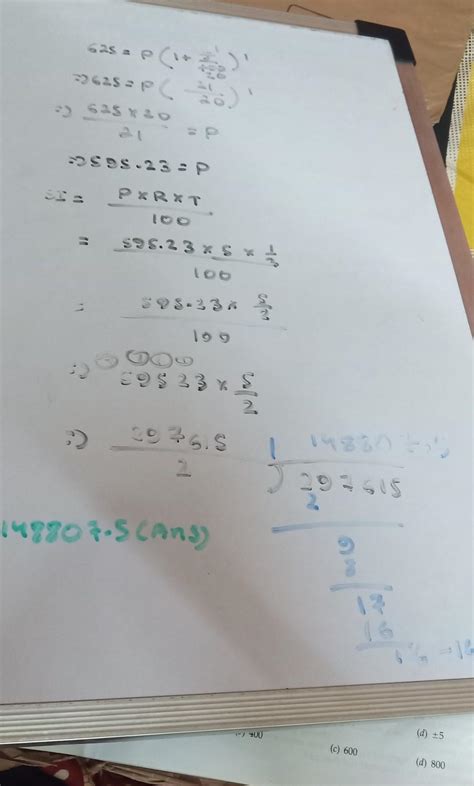 625 = P (1 + 5/100)¹
1
20
=> 625 = P (21/20)¹
=> 625 × 20 / 21 = P
=> 595.23 = P
SI = P × R × T / 100
= 595.23 × 5 × 1/2 / 100
= 595.23 × 5/2 / 100
59523 × 5/2
297615 / 2
148807.5 (Ans)
1 148807.5
297615
2
9
8
17
16
(c) 600
(d) ±5
(d) 800